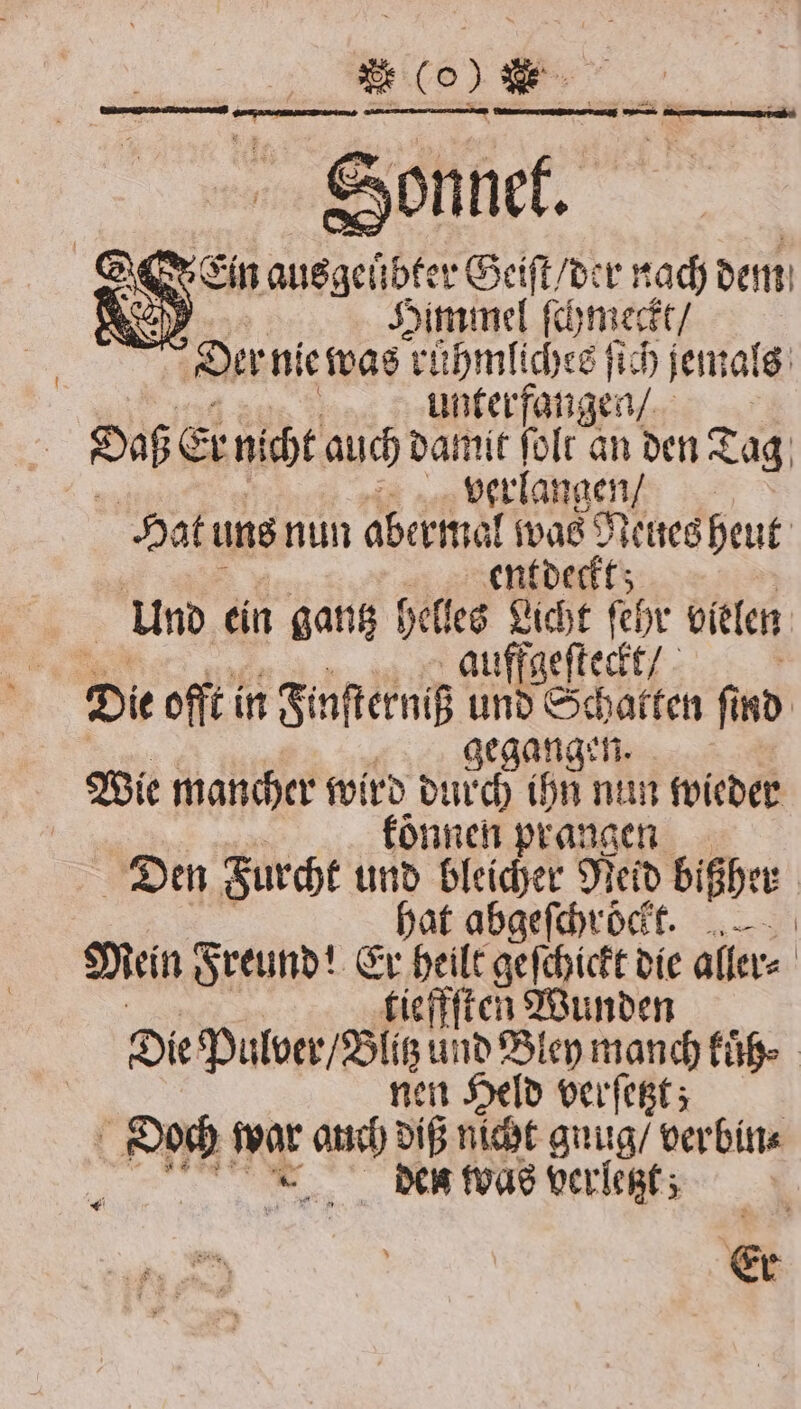 ❁ (o) ❁
Sonnet.
EJn ausgeuͤbter Geiſt/der nach dem
Himmel ſchmeckt/
Der nie was ruͤhmliches ſich jemals
unterfangen/
Daß Er nicht auch damit ſolt an den Tag
verlangen/
Hat uns nun abermal was Neues heut
entdeckt;
Und ein gantz helles Licht ſehr vielen
auffgeſteckt/
Die offt in Finſterniß und Schatten ſind
gegangen.
Wie mancher wird durch ihn nun wieder
koͤnnen prangen
Den Furcht und bleicher Neid bißher
hat abgeſchroͤckt.
Mein Freund! Er heilt geſchickt die aller⸗
tieffſten Wunden
Die Pulver/Blitz und Bley manch kuͤh⸗
nen Held verſetzt;
Doch war auch diß nicht gnug/ verbin⸗
den was verletzt;
Er